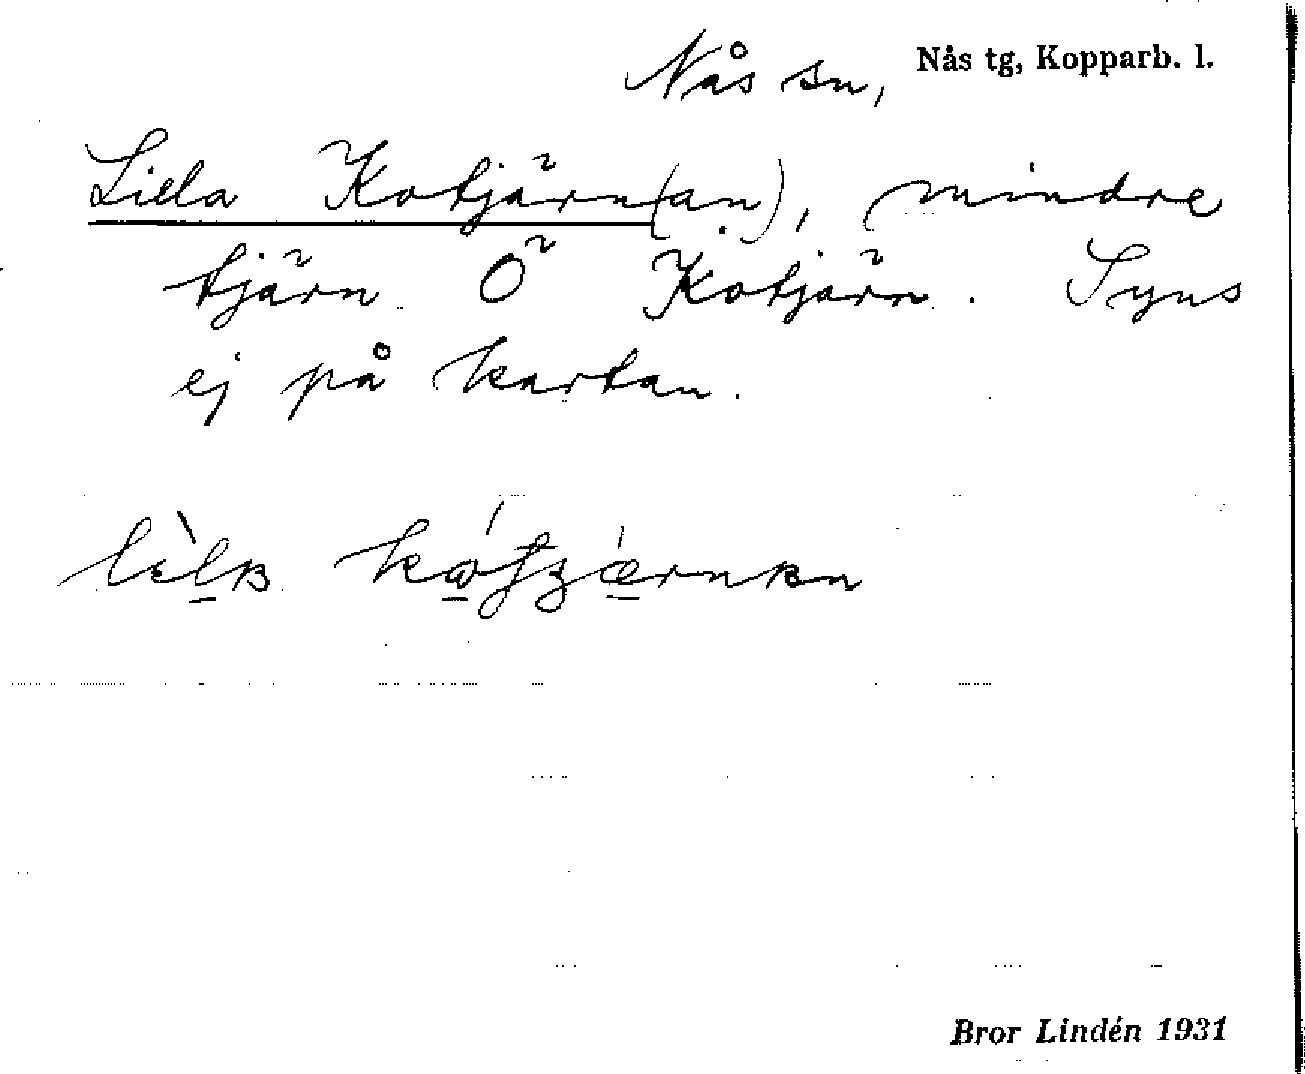 Nås sn, Nås tg, Kopparb. l.
Lilla Kotjärn(an), mindre
tjärn Ö Kotjärn. Syns
ej på kartan.
Bror Lindén 1931